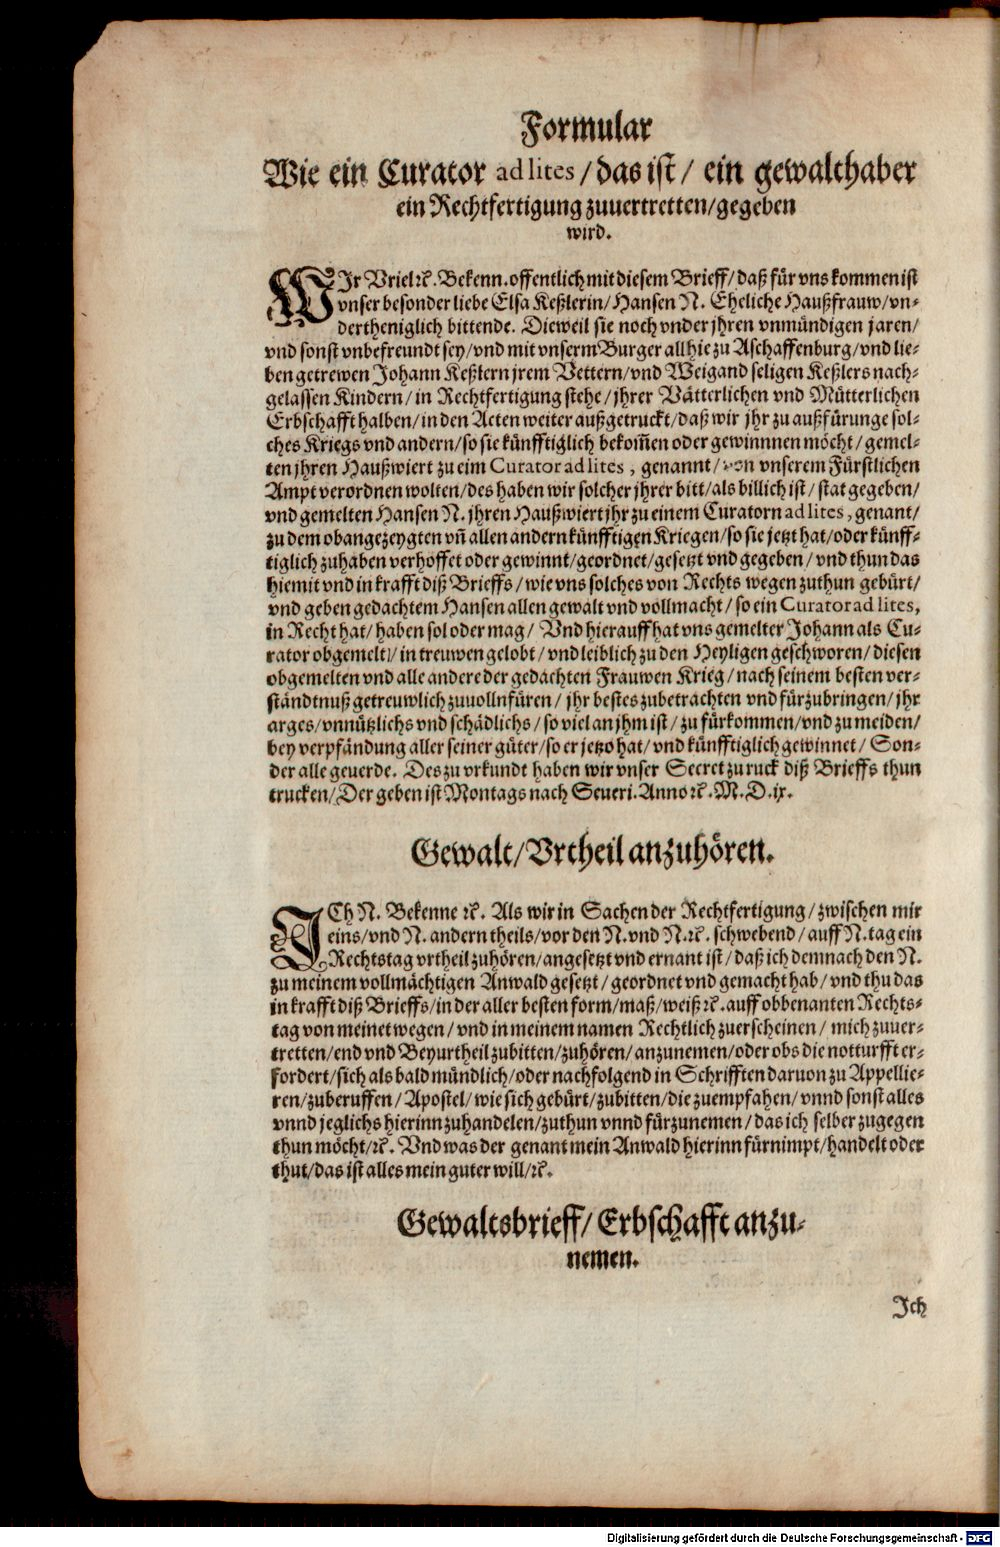 Formular
Wie ein Curator ad lites / das ist / ein gewalthaber
ein Rechtfertigung zuuertretten / gegeben
wird.
WIr Vriel ꝛc. Bekenn. offentlich mit diesem Brieff / daß für vns kommen ist
vnser besonder liebe Elsa Keßlerin / Hansen N. Eheliche Haußfrauw / vn-
dertheniglich bittende. Dieweil sie noch vnder jhren vnmündigen jaren /
vnd sonst vnbefreundt sey / vnd mit vnserm Burger allhie zu Aschaffenburg / vnd lie-
ben getrewen Johann Keßlern jrem Vettern / vnd Weigand seligen Keßlers nach-
gelassen Kindern / in Rechtfertigung stehe / jhrer Vätterlichen vnd Mütterlichen
Erbschafft halben / in den Acten weiter außgetruckt / daß wir jhr zu außfürunge sol-
ches Kriegs vnd andern / so sie künfftiglich bekom̃en oder gewinnnen möcht / gemel-
ten jhren Haußwiert zu eim Curator ad lites , genannt / von vnserem Fürstlichen
Ampt verordnen wolten / des haben wir solcher jhrer bitt / als billich ist / stat gegeben /
vnd gemelten Hansen N. jhren Haußwiert jhr zu einem Curatorn ad lites , genant /
zu dem obangezeygten vñ allen andern künfftigen Kriegen / so sie jetzt hat / oder künff-
tiglich zuhaben verhoffet oder gewinnt / geordnet / gesetzt vnd gegeben / vnd thun das
hiemit vnd in krafft diß Brieffs / wie vns solches von Rechts wegen zuthun gebürt /
vnd geben gedachtem Hansen allen gewalt vnd vollmacht / so ein Curator ad lites,
in Recht hat / haben sol oder mag / Vnd hierauff hat vns gemelter Johann als Cu-
rator obgemelt / in treuwen gelobt / vnd leiblich zu den Heyligen geschworen / diesen
obgemelten vnd alle andere der gedachten Frauwen Krieg / nach seinem besten ver-
ständtnuß getreuwlich zuuollnfüren / jhr bestes zubetrachten vnd fürzubringen / jhr
arges / vnnützlichs vnd schädlichs / so viel an jhm ist / zu fürkommen / vnd zu meiden /
bey verpfändung aller seiner güter / so er jetzo hat / vnd künfftiglich gewinnet / Son-
der alle geuerde. Des zu vrkundt haben wir vnser Secret zu ruck diß Brieffs thun
trucken / Der geben ist Montags nach Seueri. Anno ꝛc. M. D. ix.
Gewalt / Vrtheil anzuhören.
ICh N. Bekenne ꝛc. Als wir in Sachen der Rechtfertigung / zwischen mir
eins / vnd N. andern theils / vor den N. vnd N. ꝛc. schwebend / auff N. tag ein
Rechtstag vrtheil zuhören / angesetzt vnd ernant ist / daß ich demnach den N.
zu meinem vollmächtigen Anwald gesetzt / geordnet vnd gemacht hab / vnd thu das
in krafft diß Brieffs / in der aller besten form / maß / weiß ꝛc. auff obbenanten Rechts-
tag von meinet wegen / vnd in meinem namen Rechtlich zuerscheinen / mich zuuer-
tretten / end vnd Beyurtheil zubitten / zuhören / anzunemen / oder obs die notturfft er-
fordert / sich als bald mündlich / oder nachfolgend in Schrifften daruon zu Appellie-
ren / zuberuffen / Apostel / wie sich gebürt / zubitten / die zuempfahen / vnnd sonst alles
vnnd jeglichs hierinn zuhandelen / zuthun vnnd fürzunemen / das ich selber zugegen
thun möcht / ꝛc. Vnd was der genant mein Anwald hierinn fürnimpt / handelt oder
thut / das ist alles mein guter will / ꝛc.
Gewaltsbrieff / Erbschafft anzu-
nemen.
Ich
Digitalisierung gefördert durch die Deutsche Forschungsgemeinschaft - DFG